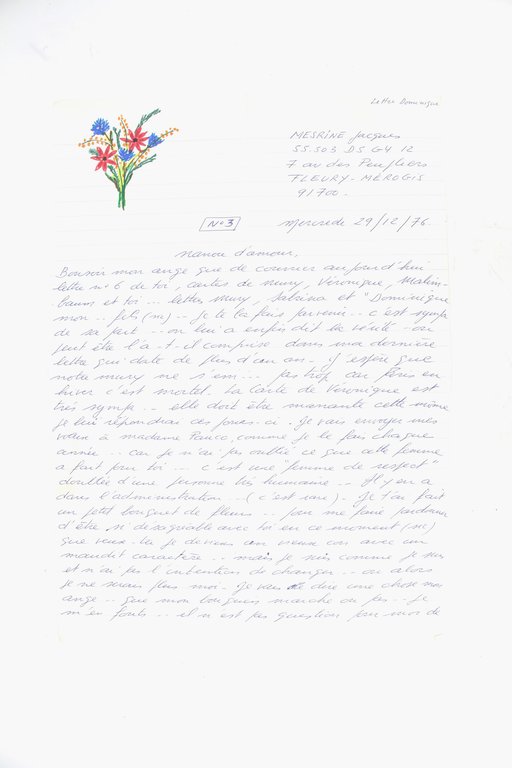 Lettre Dominique
MESRINE Jacques
55.503 D5 G4 12
7 av des Peupliers
FLEURY-MÉROGIS
91700.
N°3
Mercredi 29/12/76
Nanou d'amour,
Bonsoir mon ange que de courrier aujourd'hui
lettre n°6 de toi, cartes de Mury, Véronique,
et toi... lettres Mury, Sabrina et "Dominique
mon.. fils (sic).. je te la fais parvenir.. c'est sympa
de sa part.. on lui a enfin dit la vérité. ou
peut être l'a-t-il comprise dans ma dernière
lettre qui date de plus d'un an. J'espère que
notre Mury ne s'em... pas trop car Paris en
hiver c'est mortel. La carte de Véronique est
très sympa.. elle doit être marrante cette môme
je lui répondrai ces jours-ci. Je vais envoyer mes
vœux à madame comme je le fais chaque
année.. car je n'ai pas oublié ce que cette femme
a fait pour toi... c'est une "femme de respect"
doublée d'une personne très humaine.. Il y en a
dans l'administration..(c'est rare). Je t'ai fait
un petit bouquet de fleurs.. pour me faire pardonner
d'être si désagréable avec toi en ce moment (sic)
que veux-tu je deviens un vieux con avec un
maudit caractère.. mais je suis comme je suis
et n'ai pas l'intention de changer.. ou alors
je ne serais plus moi. Je vais te dire une chose mon
ange.. que mon bouquin marche ou pas.. je
m'en fouts.. il n'est pas question pour moi de